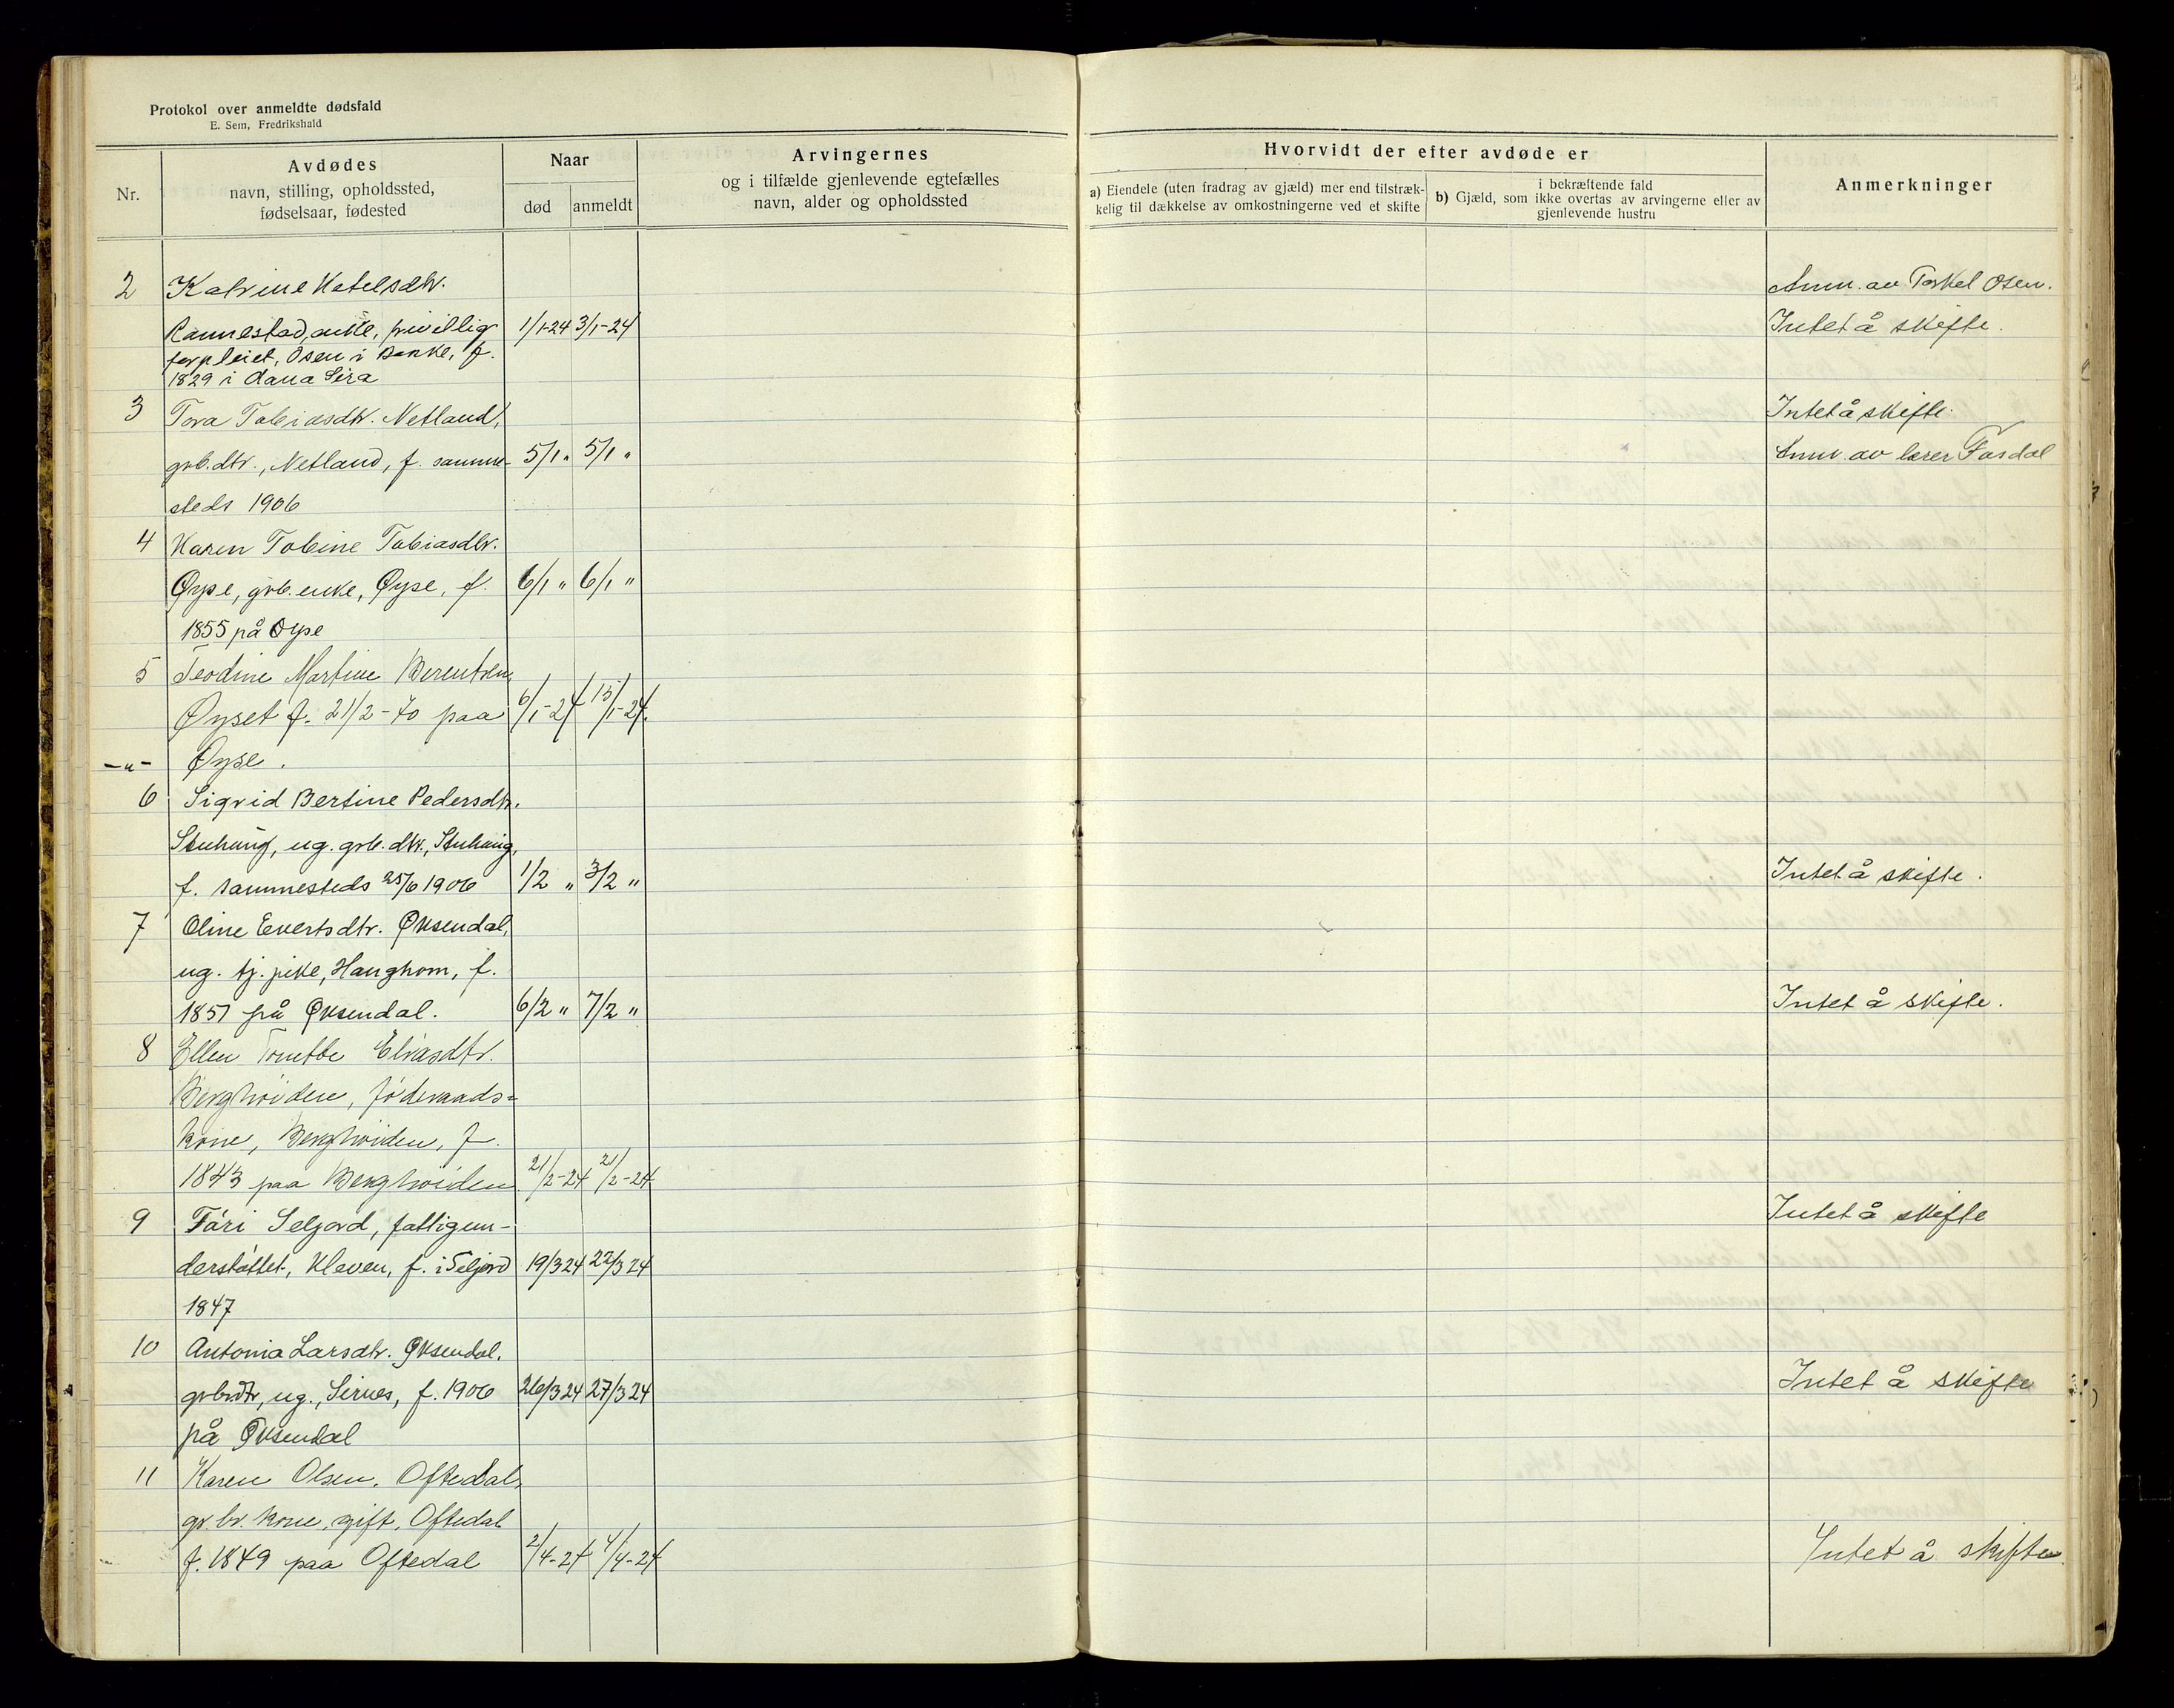 Protokol over anmeldte dødsfald
E. Sem, Fredrikshald
Nr.
Avdødes
navn, stilling, opholdssted,
fødselsaar, fødested
Naar
død anmeldt
Arvingernes
og i tilfælde gjenlevende egtefælles
navn, alder og opholdssted
Hvorvidt der efter avdøde er
a) Eiendele (uten fradrag av gjæld) mer end tilstræk-
kelig til dækkelse av omkostningerne ved et skifte
i bekræftende fald
b) Gjæld, som ikke overtas av arvingerne eller av
gjenlevende hustru
Anmerkninger
2 Katrine Ketelsdtr. Anm. av Torkel Osen.
Rannestad, enke, privellig 1/1-24 3/1-24 Intet å skifte.
forpleiet, Osen i Bakke, f.
1829 i Aana Sira
3 Tora Tobiasdtr. Netland, Intet å skifte.
grb.dtr., Netland, f. samme- 5/1 " 5/1 " Anm. av lærer Fosdal
steds 1906
4 Karen Tobine Tobiasdtr.
Øyse, grb. enke, Øyse, f. 6/1 " 6/1 "
1855 på Øyse
5 Teodine Martine Berentsen
Øyset f. 21/2-70 paa 6/1-24 15/1-24.
-"- Øyse.
6 Sigrid Bertine Pedersdtr.
Stuhaug, ug. grb. dtr., Stuhaug,
f. sammesteds 25/6 1906 1/2 " 3/2 " Intet å skifte.
7 Oline Evertsdtr. Øksendal,
ug. tj. pike, Haughom, f.
1851 på Øksendal. 6/2 " 7/2 " Intet å skifte.
8 Ellen Tonette Eliasdtr.
Berghøiden, føderaads-
kone, Berghøiden, f.
1843 paa Berghøiden 21/2-24 21/2-24
9 Tári Seljord, fattigun- Intet å skifte
derstøttet, Kleven, f. i Seljord 19/3 24 22/3 24
1847
10 Antonia Larsdtr. Øksendal.
grbrdtr, ug., Sirnes, f. 1906 26/3 24 27/3 24 Intet å skifte
på Øksendal
11 Karen Olsen, Oftedal,
gr. br. kone, gift, Oftedal
f. 1849 paa Oftedal 2/4-24 4/4-24 Intet å skifte.